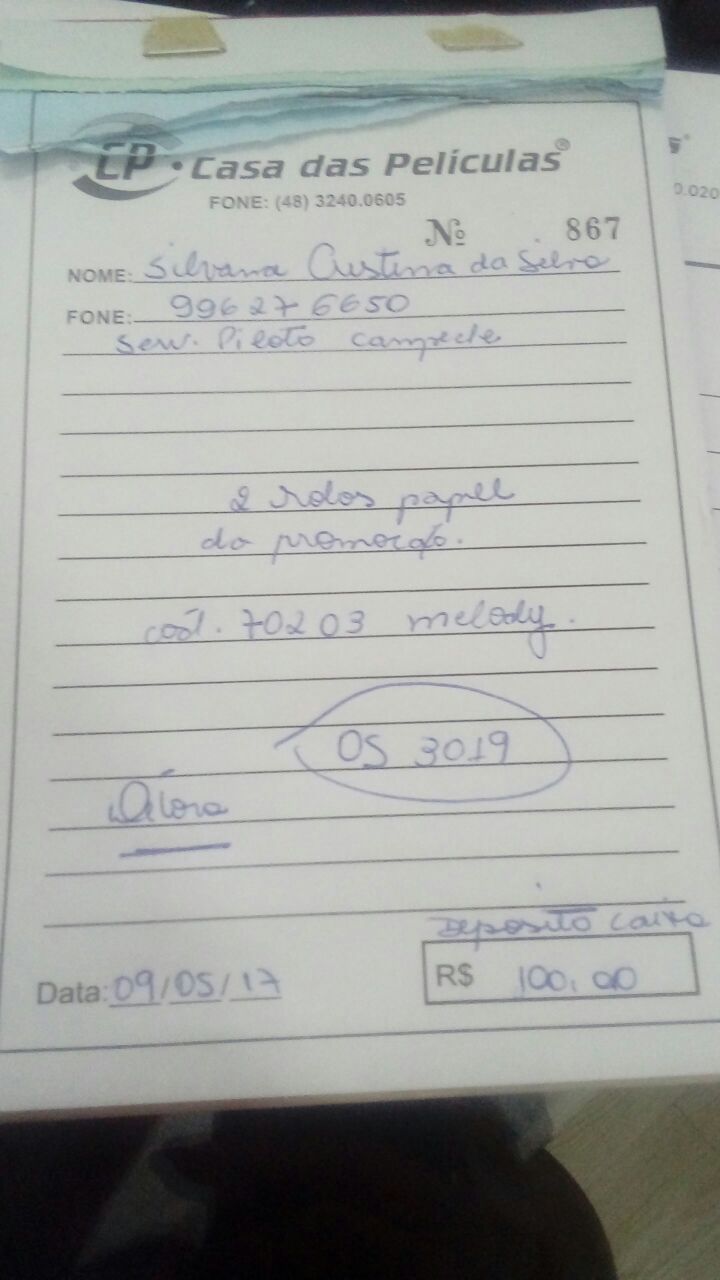 CP • Casa das Películas®
FONE: (48) 3240.0605
Nº 867
NOME: Silvana Cristina da Silva
FONE: 996276650
Serv. Piloto campeche
2 rolos papel
da promoção.
cód. 70203 melody.
OS 3019
Débora
Deposito caixa
Data: 09/05/17 R$ 100,00
0.020